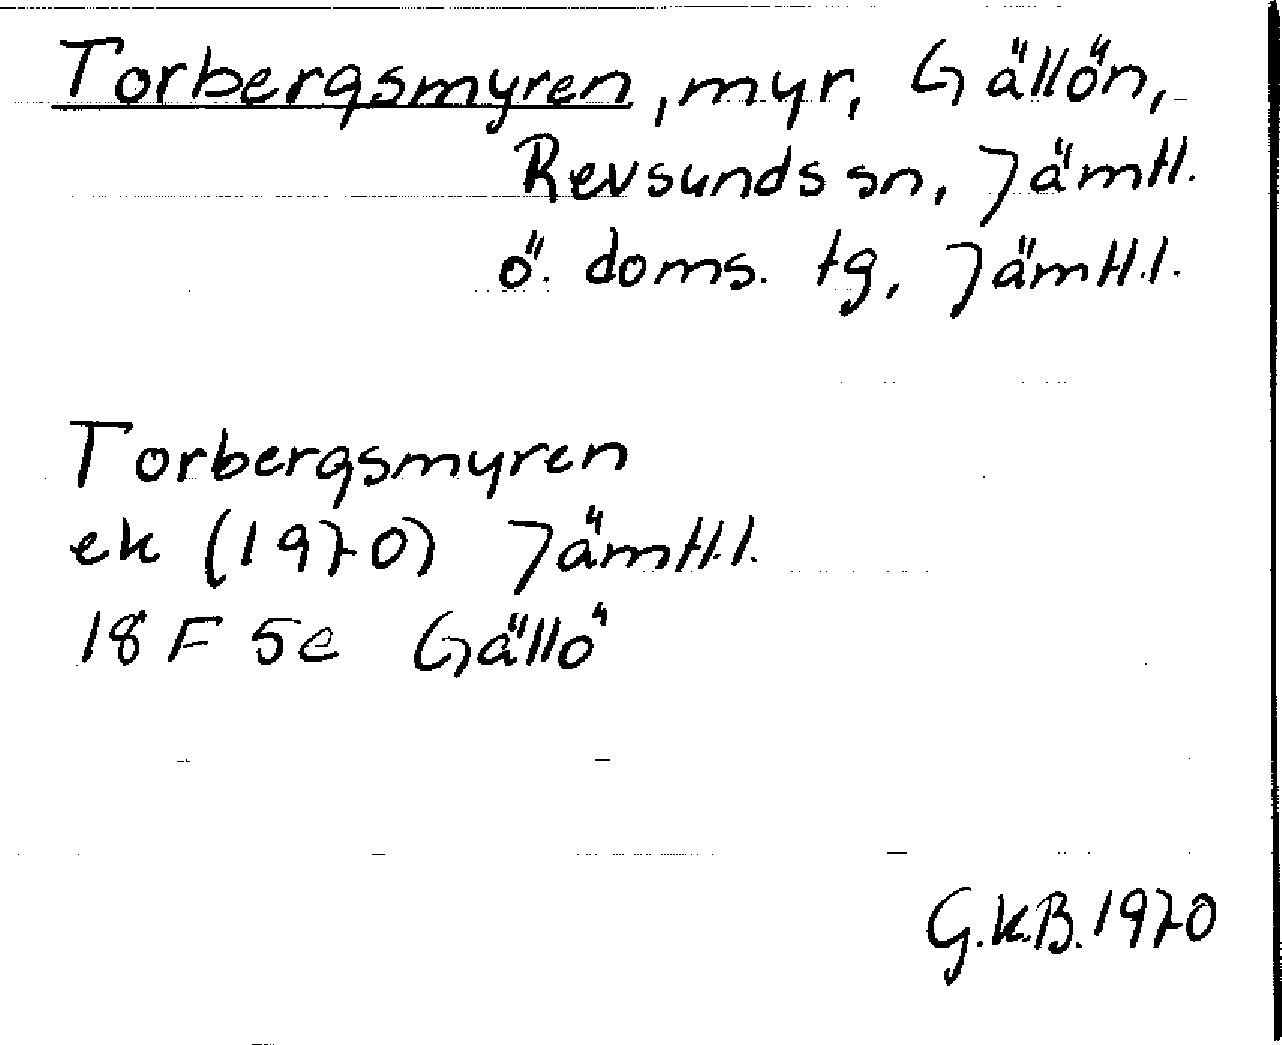 Torbergsmyren, myr, Gällön,
Revsunds sn, Jämtl.
ö. doms. tg, Jämtl.l.
Torbergsmyren
ek (1970) Jämtl.l.
18 F 5e Gällö
G.K.B. 1970